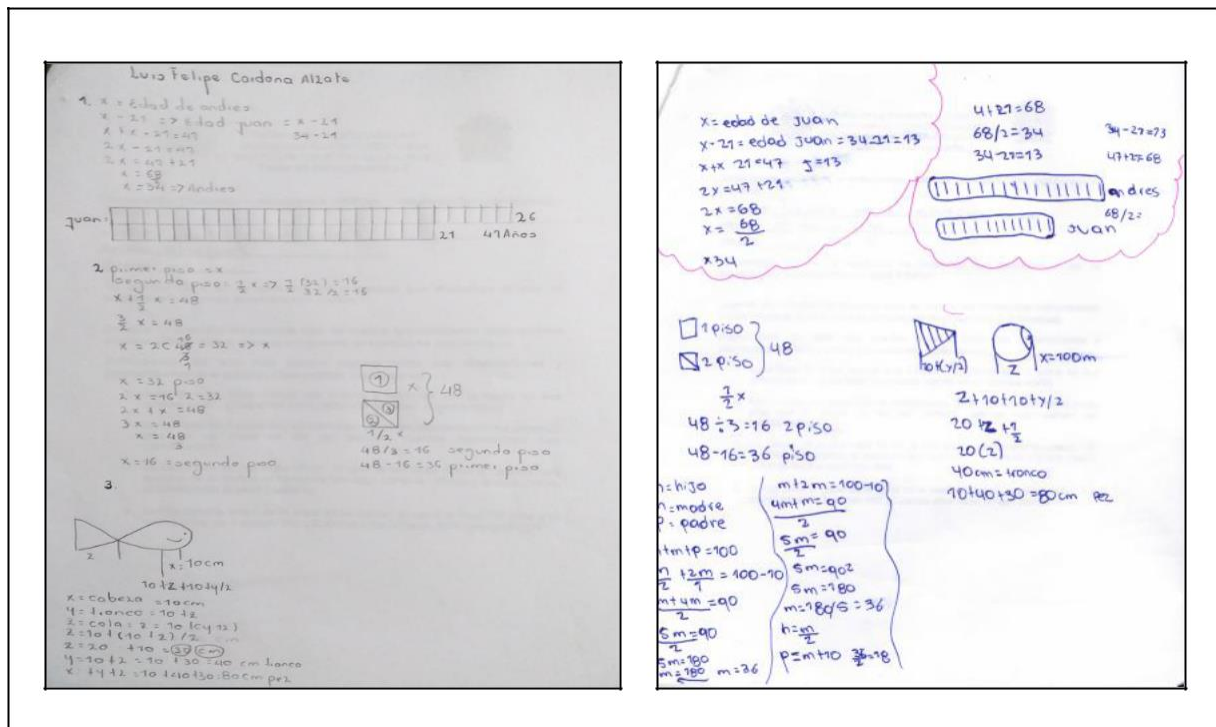 Luis Felipe Cardona Alzate
1. x = Edad de andres
x - 21 => Edad juan = x - 21
34 - 21
x + x - 21 = 47
2x - 21 = 47
2x = 47 + 21
x = 68
x = 34 => Andres
juan:
26
21 47 Años
2 primer piso = x
segundo piso: 1/2 x => 1/2 (32) = 16
32/2 = 16
x + 1/2 x = 48
3/2 x = 48
x = 2( 48 = 32 => x
16
3
1
x = 32 piso
2 x = 16 2 = 32
2x + x = 48
3x = 48
x = 48
3
x = 16 = segundo piso
1
x
48
2
1/2 x
48/3 = 16 segundo piso
48 - 16 = 36 primer piso
3.
z
x = 10cm
10 + z + 10 + y/2
x = cabeza = 10cm
y = tronco = 10 + z
z = cola = z = 10 + (y + 2)
z = 10 + (10 + z) / 2
z = 20 + 10 = 30 cm
y = 10 + z = 10 + 30 = 40 cm tronco
x + y + z = 10 + 40 + 30 : 80cm pez
x = edad de juan
x - 21 = edad juan = 34 - 21 = 13
x + x 21 = 47 j = 13
2x = 47 + 21
2x = 68
x = 68
2
x 34
4 + 21 = 68
68/2 = 34
34 - 21 = 13
34 - 21 = 13
47 + 21 = 68
andres
68/2 =
Juan
1 piso
2 piso
48
1/2 x
48 ÷ 3 = 16 2 piso
48 - 16 = 36 piso
10 + (y/2)
z
x = 100m
z + 10 + 10 + y/2
20 + z + 1/2
20 (2)
40 cm = tronco
10 + 40 + 30 = 80 cm pez
= hijo
= madre
= padre
+ m + p = 100
2
+ 2m
1
= 100 - 10
m + 4m = 90
2
5m = 90
2
5m = 180
m = 180 m = 36
m + 2m = 100 - 10
4m + m = 90
2
5m = 90
2
5m = 902
5m = 180
m = 180/5 = 36
h = m
2
p = m + 10 36/2 = 18